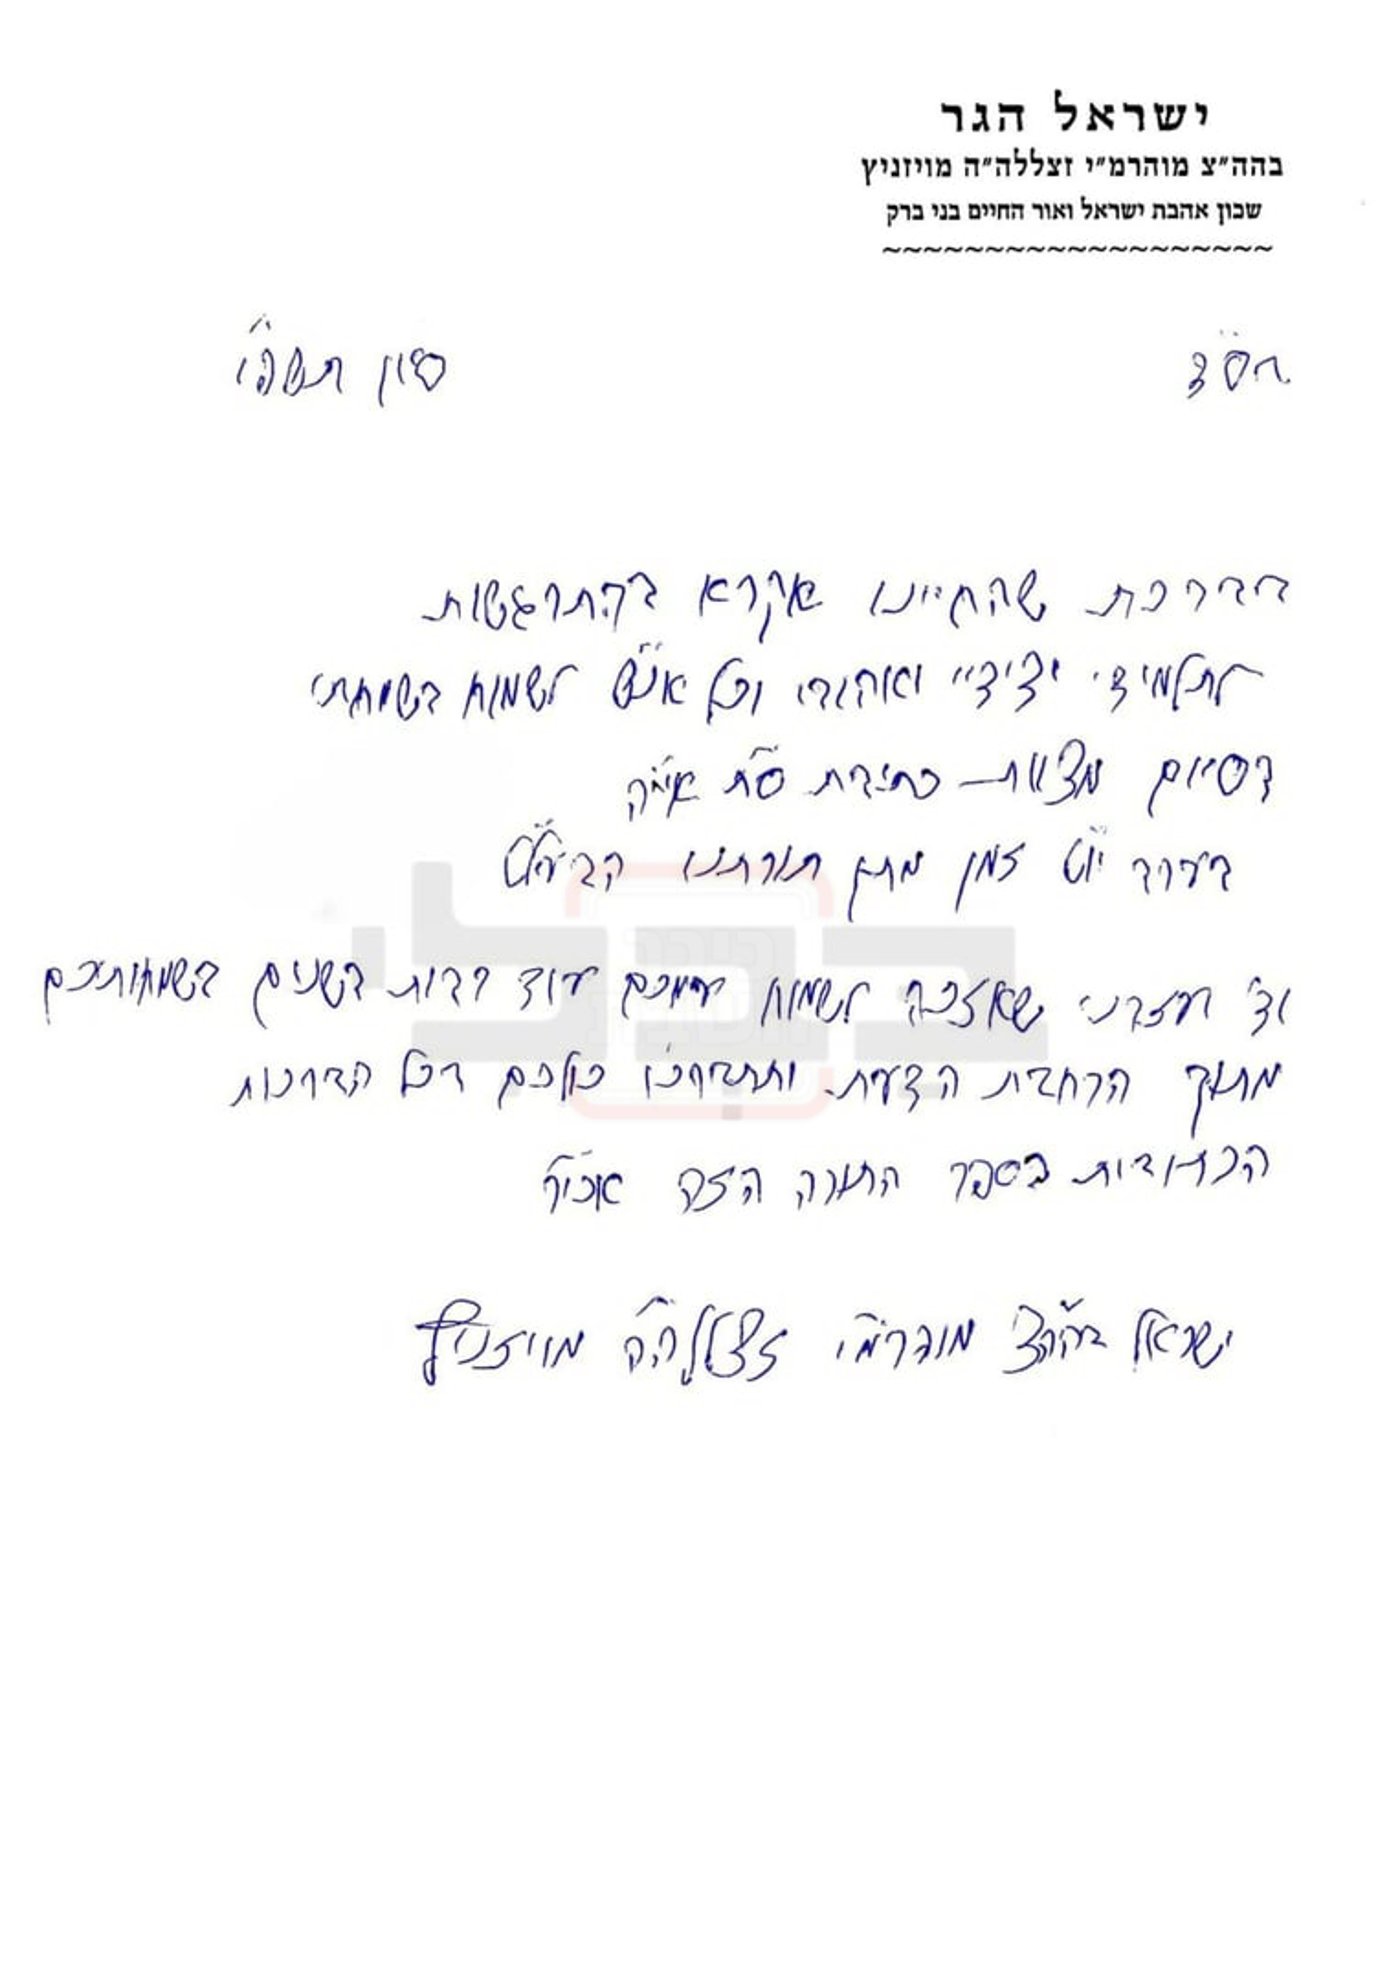 ישראל הגר
בהה"צ מוהרמ"י זצללה"ה מויזניץ
שכון אהבת ישראל ואור החיים בני ברק
~~~~~~~~~~~~~~~~~~~
בס"ד
סיון תשפ"ו
בברכת שהחיינו אקרא בהתרגשות
לתלמידי ידידיי ואוהבי וכל אנ"ש לשמוח בשמחתי
בסיום מצות כתיבת ס"ת אי"ה
בערב יו"ט זמן מתן תורתנו הבעל"ט
וד' יעזרני שאזכה לשמוח עמכם עוד רבות בשנים בשמחותיכם
מתוך הרחבת הדעת. ותתברכו כולכם בכל הברכות
הכתובות בספר התורה הזה אכי"ר
ישראל בהה"צ מוהרמ"י זצללה"ה מויזניץ
בבלי